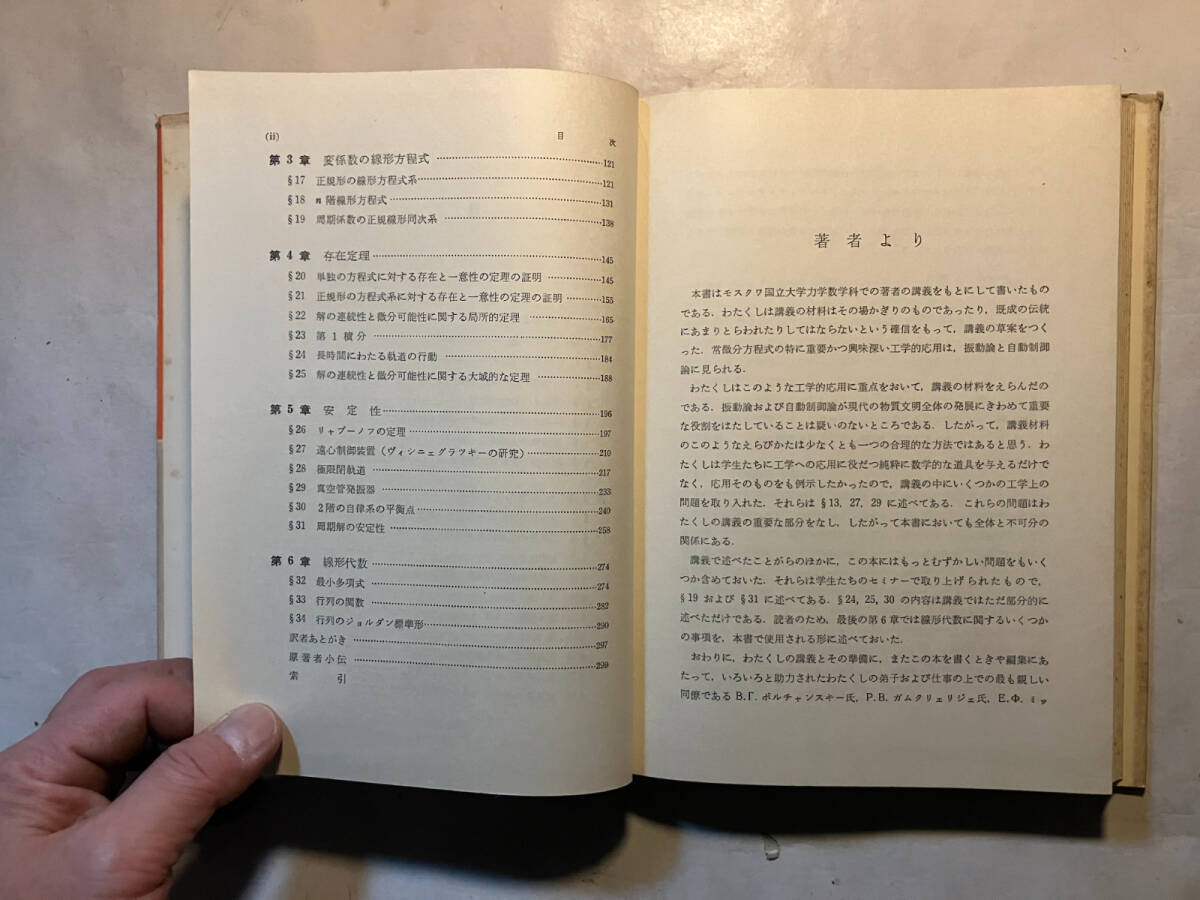 (ii) 目 次
第3章 変係数の線形方程式 ……121
§17 正規形の線形方程式系……121
§18 n階線形方程式……131
§19 周期係数の正規線形同次系 ……138
第4章 存在定理……145
§20 単独の方程式に対する存在と一意性の定理の証明……145
§21 正規形の方程式系に対する存在と一意性の定理の証明……155
§22 解の連続性と微分可能性に関する局所的定理 ……165
§23 第1積分 ……177
§24 長時間にわたる軌道の行動 ……184
§25 解の連続性と微分可能性に関する大域的な定理 ……188
第5章 安定性……196
§26 リャプーノフの定理 ……197
§27 遠心制御装置(ヴィシニェグラツキーの研究)……210
§28 極限閉軌道……217
§29 真空管発振器 ……233
§30 2階の自律系の平衡点……240
§31 周期解の安定性 ……258
第6章 線形代数 ……274
§32 最小多項式 ……274
§33 行列の関数 ……282
§34 行列のジョルダン標準形……290
訳者あとがき ……297
原著者小伝 ……299
索 引
著者より
本書はモスクワ国立大学力学数学科での著者の講義をもとにして書いたもの
である.わたくしは講義の材料はその場かぎりのものであったり,既成の伝統
にあまりとらわれたりしてはならないという確信をもって,講義の草案をつく
った.常微分方程式の特に重要かつ興味深い工学的応用は,振動論と自動制御
論に見られる.
わたくしはこのような工学的応用に重点をおいて,講義の材料をえらんだの
である.振動論および自動制御論が現代の物質文明全体の発展にきわめて重要
な役割をはたしていることは疑いのないところである.したがって,講義材料
のこのようなえらびかたは少なくとも一つの合理的な方法ではあると思う.わ
たくしは学生たちに工学への応用に役だつ純粋に数学的な道具を与えるだけで
なく,応用そのものをも例示したかったので,講義の中にいくつかの工学上の
問題を取り入れた.それらは §13, 27, 29 に述べてある.これらの問題はわ
たくしの講義の重要な部分をなし,したがって本書においても全体と不可分の
関係にある.
講義で述べたことがらのほかに,この本にはもっとむずかしい問題をもいく
つか含めておいた.それらは学生たちのセミナーで取り上げられたもので,
§19 および §31 に述べてある.§24, 25, 30 の内容は講義ではただ部分的に
述べただけである.読者のため,最後の第6章では線形代数に関するいくつか
の事項を,本書で使用される形に述べておいた.
おわりに,わたくしの講義とその準備に,またこの本を書くときや編集にあ
たって,いろいろと助力されたわたくしの弟子および仕事の上での最も親しい
同僚である В.Г. ボルチャンスキー氏, Р.В. ガムクリェリジェ氏, Е.Ф. ミッ